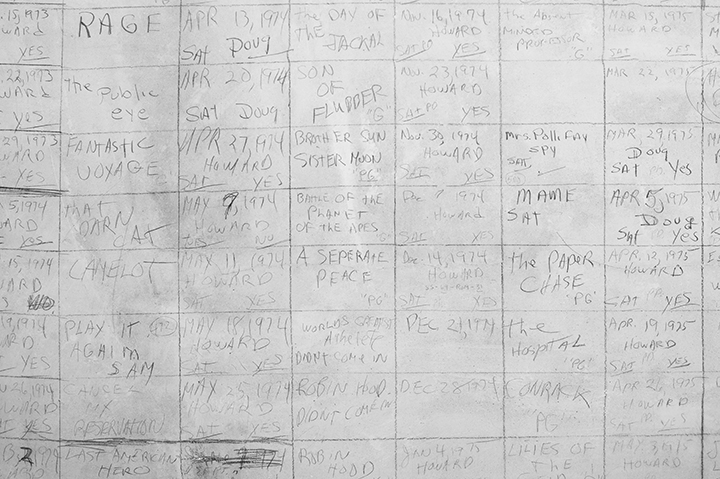 RAGE
APR 13, 1974
SAT Doug
the DAY OF
THE JACKAL
Nov. 16, 1974
HOWARD
SAT YES
the Absent
MINDED
PROFESSOR
"G"
MAR 15, 1975
HOWARD
SAT YES
22, 1973
YES
the Public
eye
APR 20, 1974
SAT Doug
SON
OF
FLUBBER
"G"
Nov. 23, 1974
HOWARD
SAT PG YES
MAR 22, 1975
29, 1973
YES
FANTASTIC
VOYAGE
APR 27, 1974
HOWARD
SAT YES
BROTHER SUN
SISTER MOON
"PG"
Nov. 30, 1974
HOWARD
SAT YES
Mrs. Polli FAX
SPY
SAT.
MAR. 29, 1975
Doug
SAT Yes
5, 1974
YES
that
DARN
CAT
MAY 1974
HOWARD
BATTLE OF THE
PLANET
OF THE APES
Dec 7 1974
Howard
SAT YES
MAME
SAT
APR 5, 1975
Doug
SAT Yes
15, 1974
CAMELOT
MAY 11 1974
HOWARD
SAT YES
A SEPERATE
PEACE
"PG"
Dec. 14, 1974
HOWARD
SAT YES
the PAPER
CHASE
"PG"
APR. 12, 1975
HOWARD
SAT YES
19, 1974
YES
PLAY IT
AGAIN
SAM
MAY 18, 1974
HOWARD
SAT YES
WORLDS GREATEST
Athelete
DIDNT COME IN
DEC 21, 1974
the
Hospital
"PG"
APR. 19, 1975
HOWARD
SAT YES
26, 1974
YES
CANCEL
MY
RESERVATION
MAY 25, 1974
HOWARD
SAT YES
ROBIN HOOD
DIDNT COME IN
DEC 28 1974
CONRACK
PG
APR 26, 1975
HOWARD
SAT YES
LAST AMERICAN
HERO
ROBIN
HOOD
JAN 4, 1975
HOWARD
LILIES OF
THE
MAY 3, 1975
HOWARD